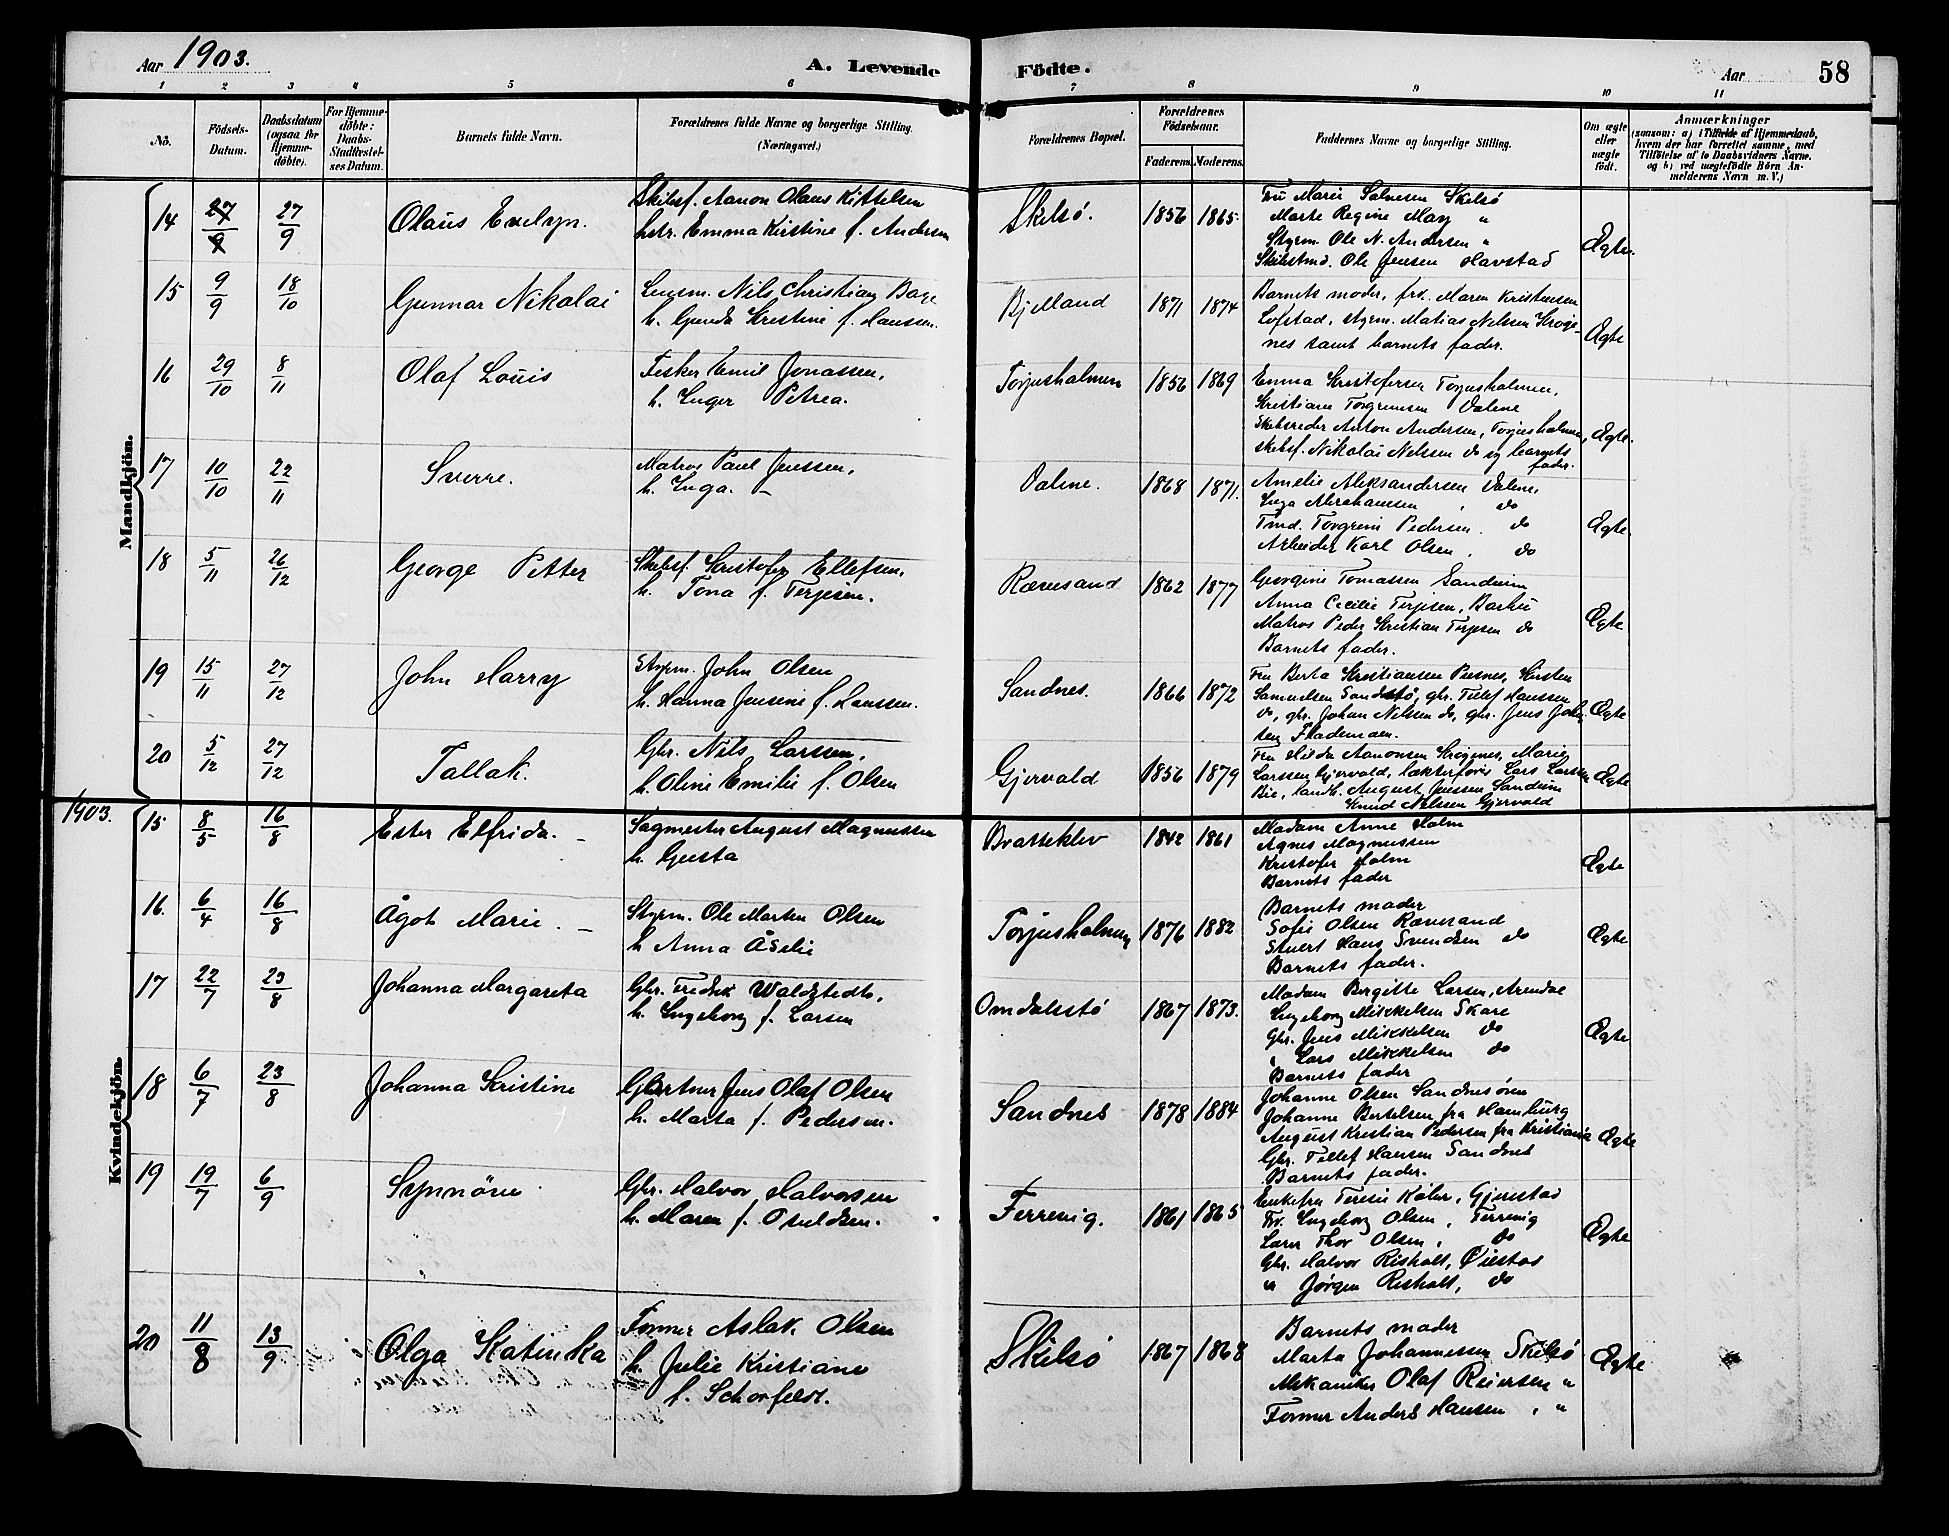 Aar 1903.
A. Levende Fødte.
Aar
58
1 2 3 4 5 6 7 8 9 10 11
No.
Fødsels-
Datum.
Daabsdatum
(ogsaa for
Hjemme-
døbte).
For Hjemme-
døbte:
Daabs-
Stadfæstel-
ses Datum.
Barnets fulde Navn.
Forældrenes fulde Navne og borgerlige Stilling.
(Næringsvei.)
Forældrenes Bopæl.
Forældrenes
Fødselsaar.
Faderens. Moderens.
Faddernes Navne og borgerlige Stilling.
Om ægte
eller
uægte
født.
Anmærkninger
(saasom: a) i Tilfælde af Hjemmedaab,
hvem der har forrettet samme, med
Tilføielse af to Daabsvidners Navne.
og b) ved uægtefødte Børn An-
melderens Navn m. V.)
Mandkjøn.
14 27/9 27/9 Olaus Evelyn. Skibsf. Aanon Olaus Kittelsen
hstr. Emma Kirstine f. Andersen
Skilsø. 1856 1865.
Fru Marie Salvesen Skilsø
Marte Regine May "
Styrm. Ole N. Andersen "
Skibstmd. Ole Jensen Havstad
Ægte.
15 9/9 18/10 Gunnar Nikolai
Lensm. Nils Christian Bage
h. Gunda Kristine f. Hansen.
Bjelland 1871 1874
Barnets moder, frk. Maren Kristensen
Lofstad, styrm. Matias Nelsen Kroge-
nes samt barnets fader.
Ægte
16 29/10 8/11 Olaf Louis
Fisker Emil Jonassen,
h. Inger Petrea.
Torjusholmen 1856 1869
Emma Kristofersen Torjusholmen,
Kristiane Torgrimsen Valene
Skibsreder Anton Andersen, Torjusholmen,
skibsf. Nikolai Nelssen do og barnets
fader.
Ægte.
17 10/10 22/11 Sverre.
Matros Paul Jenssen,
h. Inga. -
Valene. 1868 1871.
Amelie Aleksandersen Valene,
Inga Abrahamsen do
Tmd. Torgrim Pedersen. do
Arbeider Karl Olsen. do
Ægte.
18 5/11 26/12 George Petter
Skibsf. Kristofer Ellefsen.
h. Tona f. Terjesen.
Rævesand 1862 1877
Georgine Tomassen Sandum
Anna Cecilie Terjesen, Barbu
Matros Peder Kristian Terjesen do
Barnets fader.
Ægte
19 15/11 27/12 John Harry
Styrm. John Olsen
h. Hanna Jensine f. Hanssen.
Sandnes. 1866 1872
Fru Berta Kristiansen Kirsten
Samuelsen Sandstø, gbr. Tellef Hanssen
do, gbr. Johan Nelsen do, gbr. Jens Joh
sen Flademoen.
Ægte
20 5/12 27/12 Tallak.
Gbr. Nils Larssen,
h. Oline Emilie f. Olsen
Gjervald 1856 1879
Fru Hilda Aanonsen Krogenes, Marie
Larssen Gjervald, Lars Larsen
Bie, August Jenssen Sandum
Knud Nelsen Gjervald
Ægte
1903.
Kvindekjøn.
15 8/5 16/8 Ester Elfrida. -
Sagmester August Magnussen
h. Gusta
Bratteklev 1842 1861
Madam Anne Holm
Agnes Magnussen
Kristofer Holm
Barnets fader
Ægte
16. 6/4 16/8 Ågot Marie. -
Styrm. Ole Marten Olsen
h. Anna Åselie
Torjusholmen 1876 1882
Barnets moder
Sofie Olsen Rævesand
Stuert Hans Svendsen do
Barnets fader.
Ægte
17 22/7 23/8 Johanna Margareta
Gbr. Fredrik Waldstedt,
h. Ingeborg f. Larsen
Omdalsstø 1867 1873.
Madam Bergitte Larsen, Arendal
Ingeborg Mikkelsen Skare
Gbr. Jens Mikkelsen do
" Lars Mikkelsen do
Barnets fader
Ægte
18 6/7 23/8 Johanna Kristine
Gbartner Jens Olaf Olsen
h. Marta f. Pedersen.
Sandnes 1878 1884
Johanne Olsen Sandnesøren
Johanne Bertelsen fra Hamburg
August Kristian Pedersen fra Kristiania
Gbr. Tellef Hansen Sandnes
Barnets fader.
Ægte
19 19/7 6/9 Synnöve
Gbr. Halvor Halvorsen
h. Maren f. Osuldsen.
Ferrevig. 1861 1865
Enkefru Terese Køler, Gjerstad
Frk. Ingeborg Olsen, Ferrevig
Lærer Thor Olsen, do
Gbr. Halvor Risholt, Øiestad
" Jørgen Risholt, do
Ægte
20 11/8 13/9 Olga Katinka
Former Aslak Olsen
h. Julie Kristiane
f. Schorfeldt.
Skilsø 1867 1868
Barnets moder
Marta Johannessen Skilsø
Mekaniker Olaf Reiersen "
Former Anders Hansen, "
Ægte